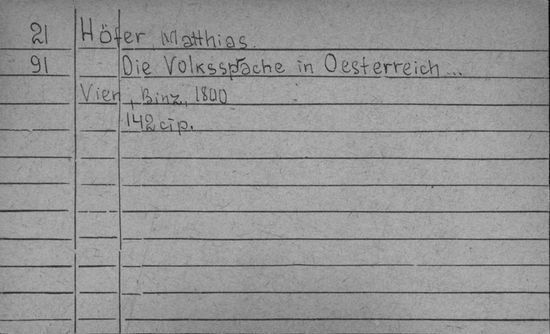 21 Höfer, Matthias.
91 Die Volkssprache in Oesterreich...
Vien, Binz, 1800
142 cтр.